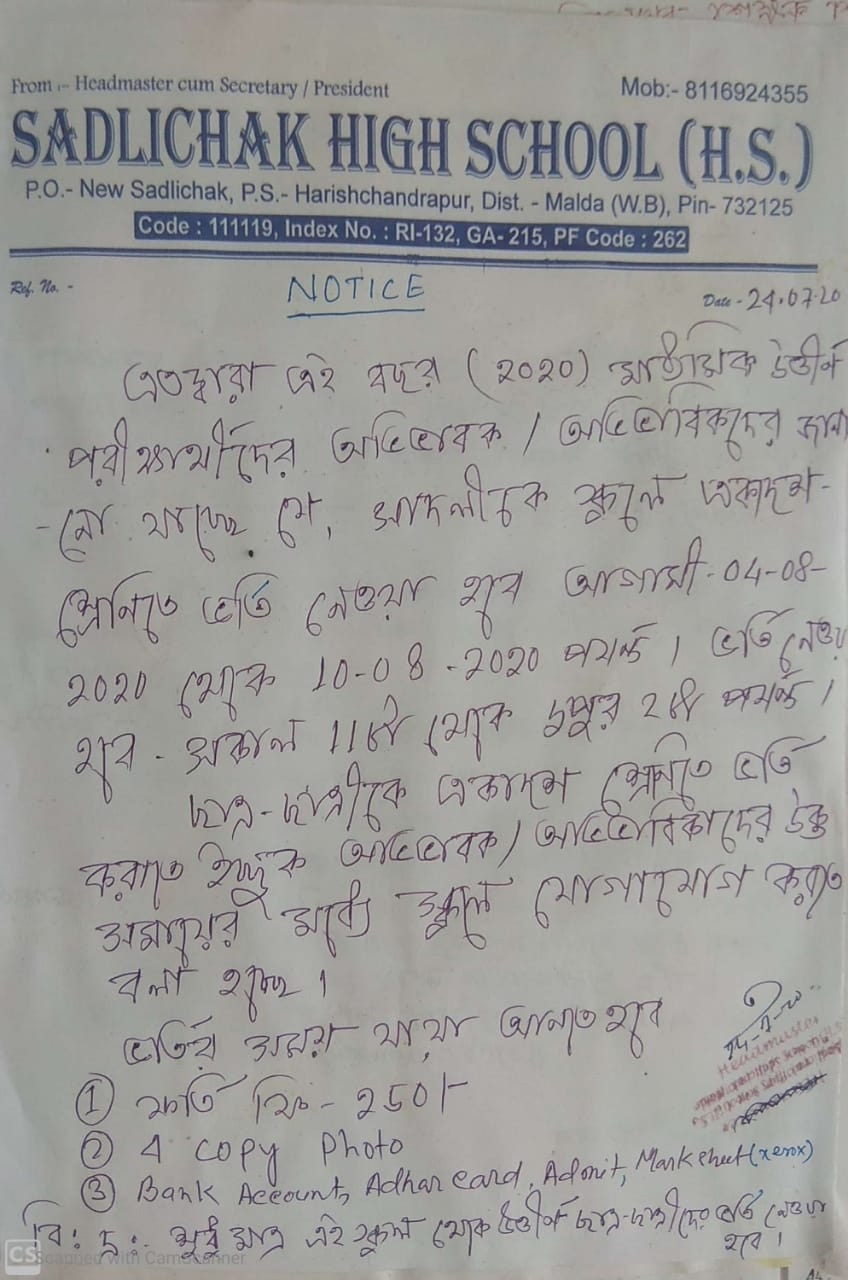 From :- Headmaster cum Secretary / President
Mob:- 8116924355
SADLICHAK HIGH SCHOOL (H.S.)
P.O.- New Sadlichak, P.S.- Harishchandrapur, Dist. - Malda (W.B), Pin- 732125
Code : 111119, Index No. : RI-132, GA- 215, PF Code : 262
Ref. No. -
NOTICE
Date - 24.07.20
এতদ্বারা এই বছর (২০২০) মাধ্যমিক উত্তীর্ণ
পরীক্ষার্থীদের অভিভাবক / অভিভাবিকদের জানা
-নো যাচ্ছে যে, সাদলীচক স্কুলে একাদশ-
শ্রেনিতে ভর্তি নেওয়া হবে আগামী-04-08-
2020 থেকে 10-08-2020 পর্যন্ত। ভর্তি নেওয়া
হবে - সকাল 11টা থেকে দুপুর 2টা পর্যন্ত।
ছাত্র-ছাত্রীকে একাদশ শ্রেনিতে ভর্তি
করাতে ইচ্ছুক অভিভাবক/অভিভাবিকাদের উক্ত
সময়ের মধ্যে স্কুলে যোগাযোগ করতে
বলা হচ্ছে।
ভর্তির সময় যা যা আনতে হবে
① ভর্তি ফি - 250/-
② 4 copy photo
③ Bank Account, Adhar card, Admit, Mark sheet (xerox)
বি: দ্র:- শুধু মাত্র এই স্কুল থেকে উত্তীর্ণ ছাত্র-ছাত্রীদের ভর্তি নেওয়া
হবে।
Headmaster
CS Scanned with CamScanner